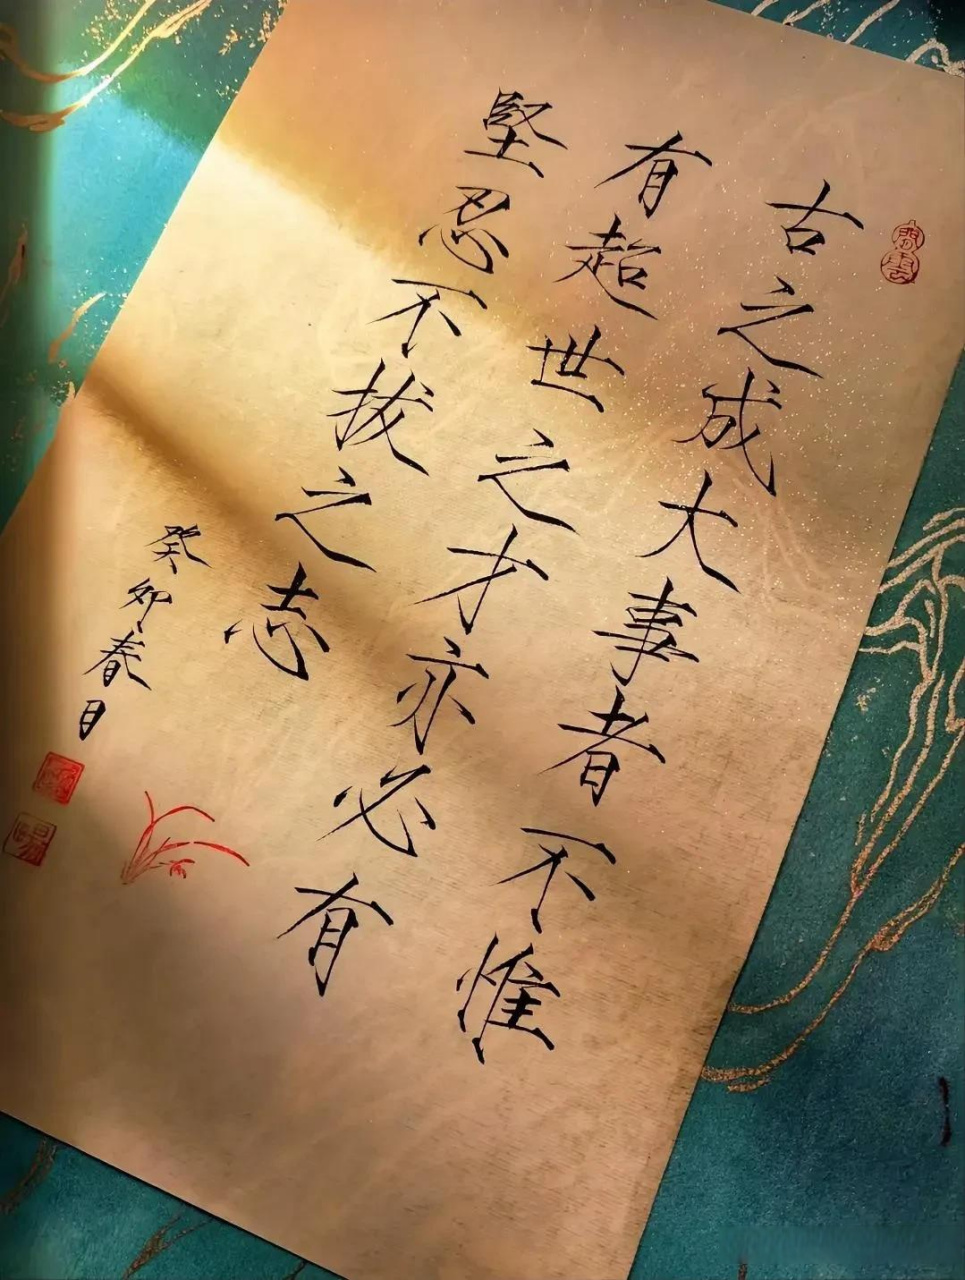 古之成大事者不惟
有超世之才亦必有
堅忍不拔之志
癸卯春日